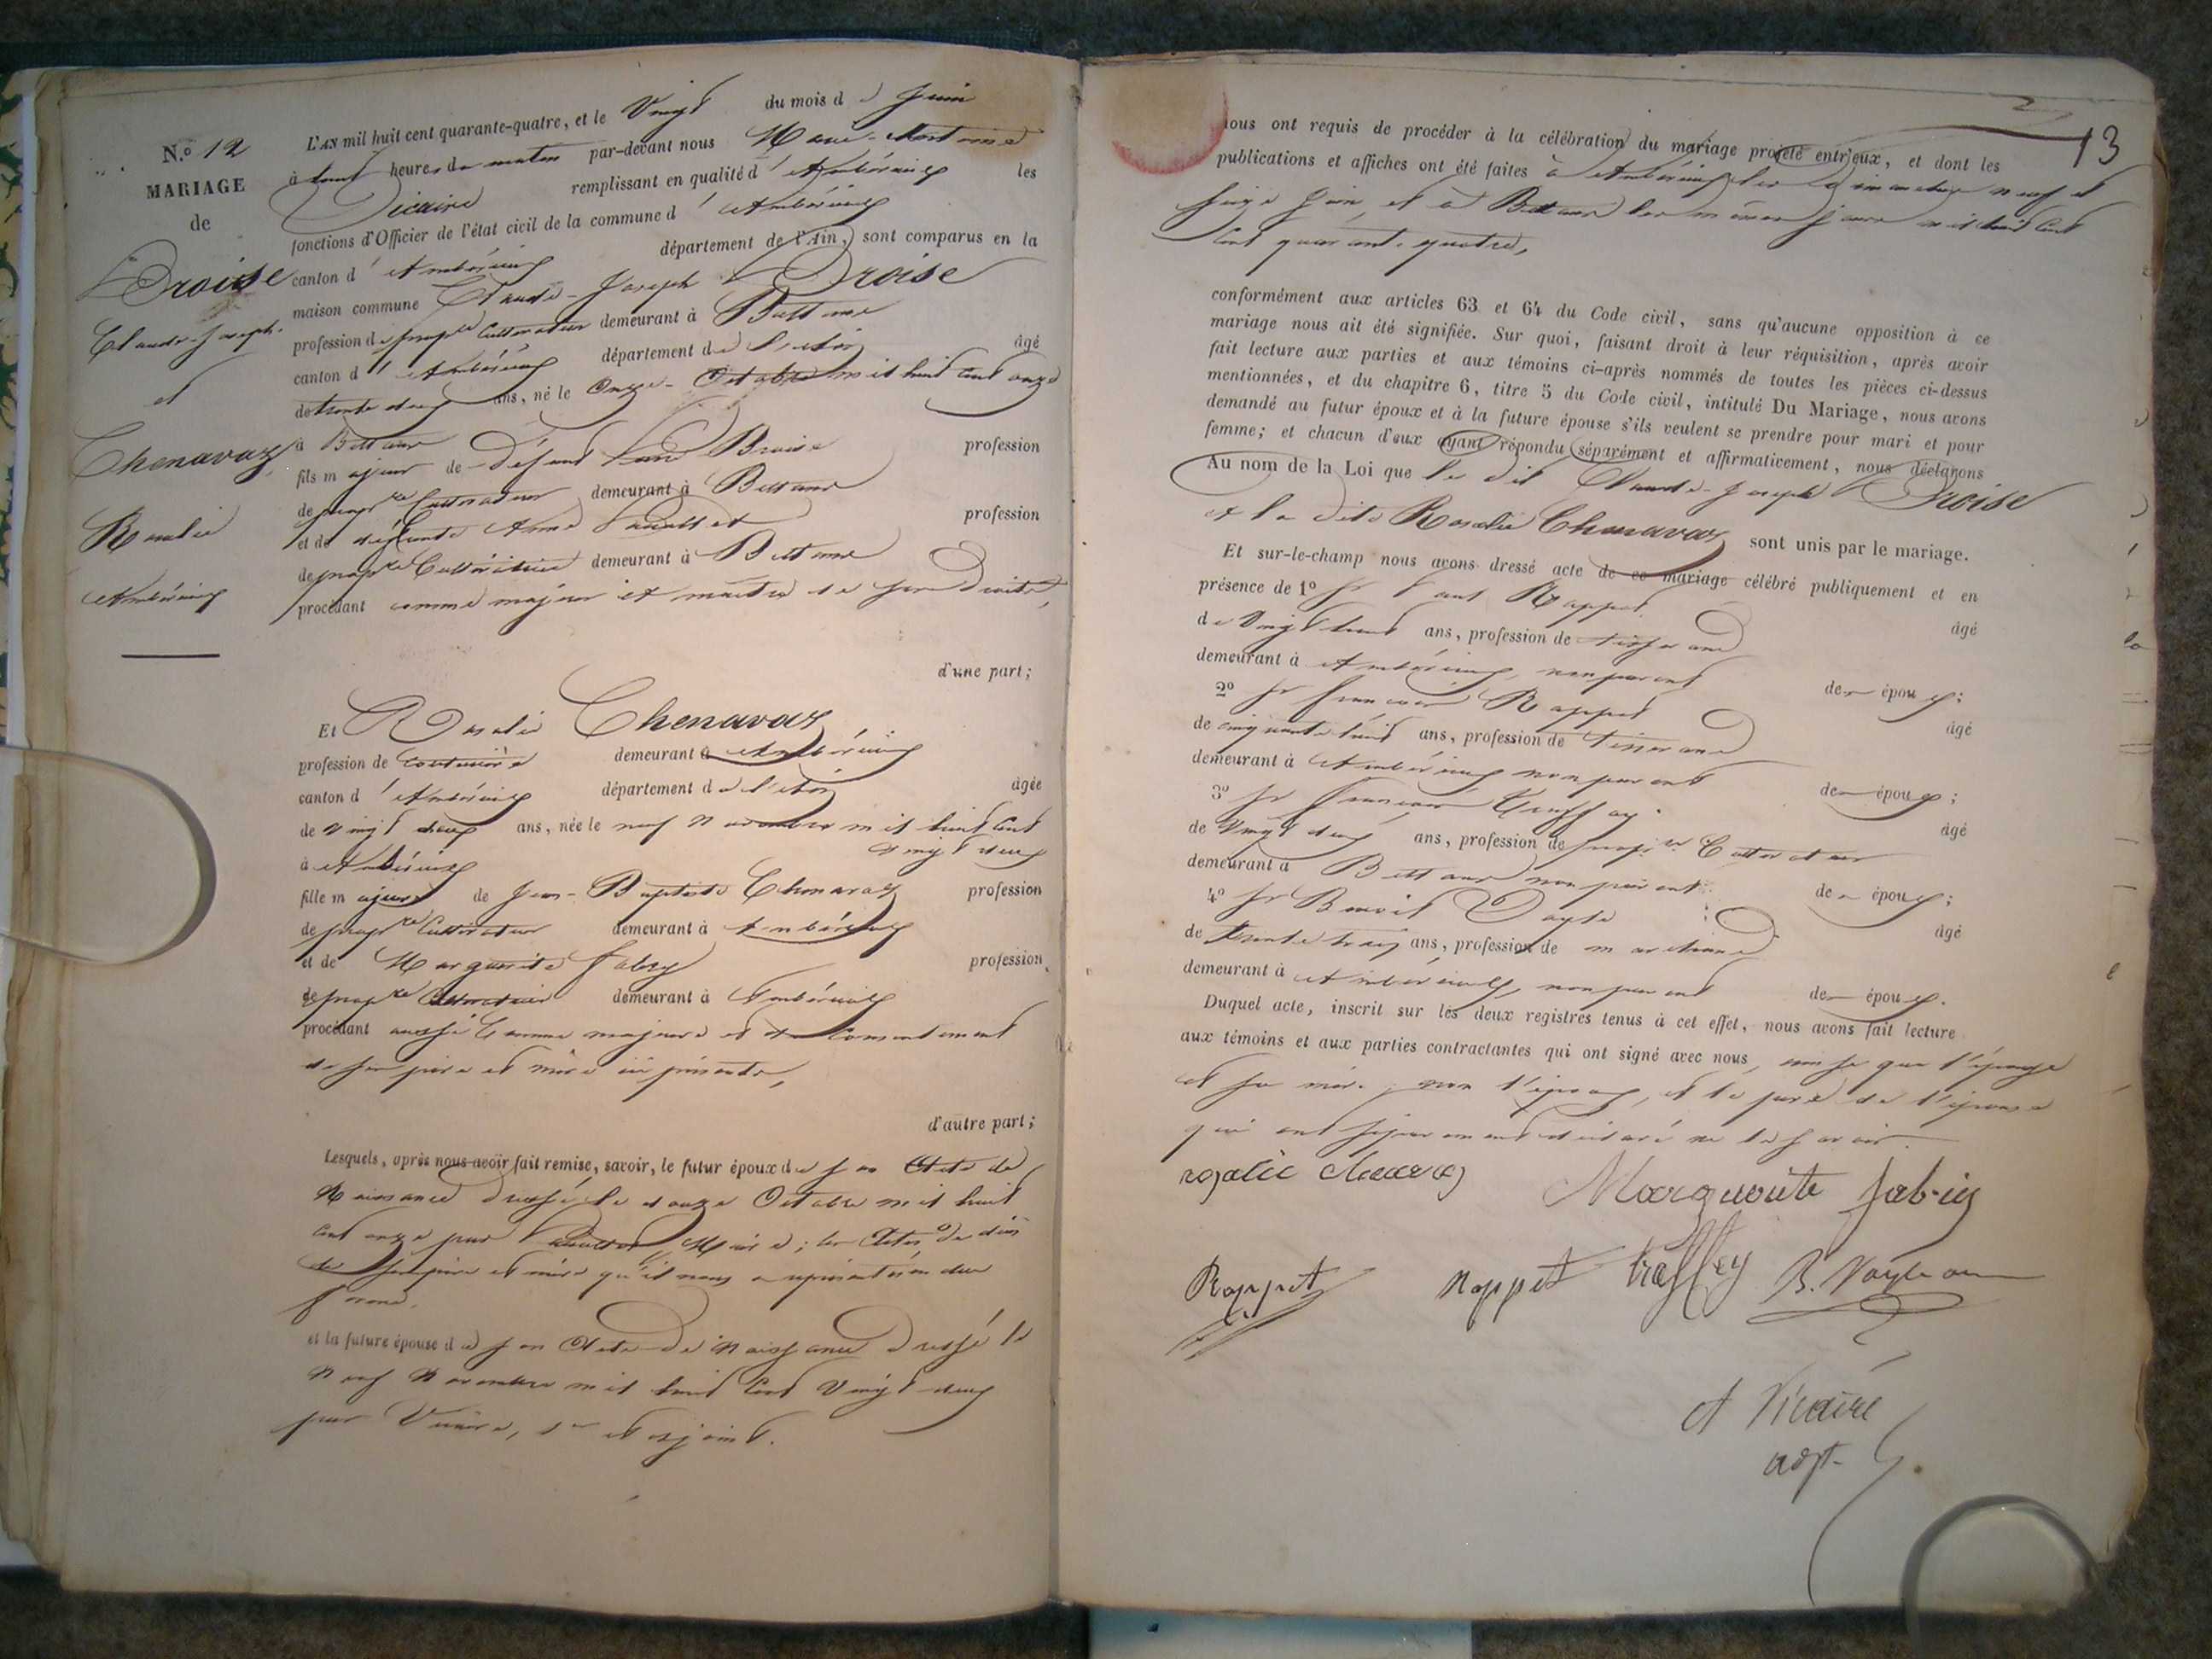 N.º 12
MARIAGE
de
Droise
Claude-Joseph
et
Chenavaz
Rosalie
Ambérieux
L'AN mil huit cent quarante-quatre, et le Vingt du mois de Juin
à heures du matin par-devant nous Marie-Antoine
Vicaire remplissant en qualité d' les
fonctions d'Officier de l'état civil de la commune d' Ambérieux
canton d' Ambérieux département de l'Ain, sont comparus en la
maison commune Claude-Joseph Droise
profession de propre Cultivateur demeurant à Bettant
canton d' Ambérieux département de l'Ain âgé
de trente deux ans, né le onze Octobre mil huit cent onze
à Bettant
fils majeur de défunt profession
de propre Cultivateur demeurant à Bettant
et de défunte Anne profession
de propre Cultivatrice demeurant à Bettant
procédant comme majeur et maître de ses droits,
d'une part;
Et Rosalie Chenavaz
profession de Couturière demeurant à Ambérieux
canton d' Ambérieux département de l'Ain âgée
de vingt deux ans, née le neuf novembre mil huit cent
vingt deux
à Ambérieux
fille majeure de Jean-Baptiste Chenavaz profession
de propre Cultivateur demeurant à Ambérieux
et de Marguerite Fabry profession
de propre Cultivatrice demeurant à Ambérieux
procédant aussi comme majeure et du consentement
de ses père et mère ici présents,
d'autre part;
Lesquels, après nous avoir fait remise, savoir, le futur époux de son Acte de
Naissance dressé le douze Octobre mil huit
cent onze par Maire; les Actes de décès
de ses père et mère qu'il nous a représentés en due
forme.
et la future épouse de son Acte de Naissance dressé le
Neuf Novembre mil huit cent Vingt deux
par Vicaire,
13
nous ont requis de procéder à la célébration du mariage projeté entr'eux, et dont les
publications et affiches ont été faites à Ambérieux les dimanches neuf et
seize Juin, et à Bettant les mêmes jours mil huit cent
quarante-quatre,
conformément aux articles 63 et 64 du Code civil, sans qu'aucune opposition à ce
mariage nous ait été signifiée. Sur quoi, faisant droit à leur réquisition, après avoir
fait lecture aux parties et aux témoins ci-après nommés de toutes les pièces ci-dessus
mentionnées, et du chapitre 6, titre 5 du Code civil, intitulé Du Mariage, nous avons
demandé au futur époux et à la future épouse s'ils veulent se prendre pour mari et pour
femme; et chacun d'eux ayant répondu séparément et affirmativement, nous déclarons
Au nom de la Loi que le dit Claude-Joseph Droise
et la dite Rosalie Chenavaz sont unis par le mariage.
Et sur-le-champ nous avons dressé acte de ce mariage célébré publiquement et en
présence de 1º Sr Rappet âgé
de Vingt huit ans, profession de tisserand
demeurant à Ambérieux, non parent des époux;
2º Sr François Rappet âgé
de cinquante huit ans, profession de tisserand
demeurant à Ambérieux non parent des époux;
3º Sr François Truffey âgé
de Vingt deux ans, profession de propre Cultivateur
demeurant à Bettant non parent des époux;
4º Sr Benoit âgé
de trente trois ans, profession de marchand
demeurant à Ambérieux, non parent des époux.
Duquel acte, inscrit sur les deux registres tenus à cet effet, nous avons fait lecture
aux témoins et aux parties contractantes qui ont signé avec nous, ainsi que l'épouse
et sa mère, non l'époux, et le père de l'épouse
qui ont séparément déclaré ne le savoir.
rosalie Marguerite fabry
Rappet Rappet
A Vicaire
adjt